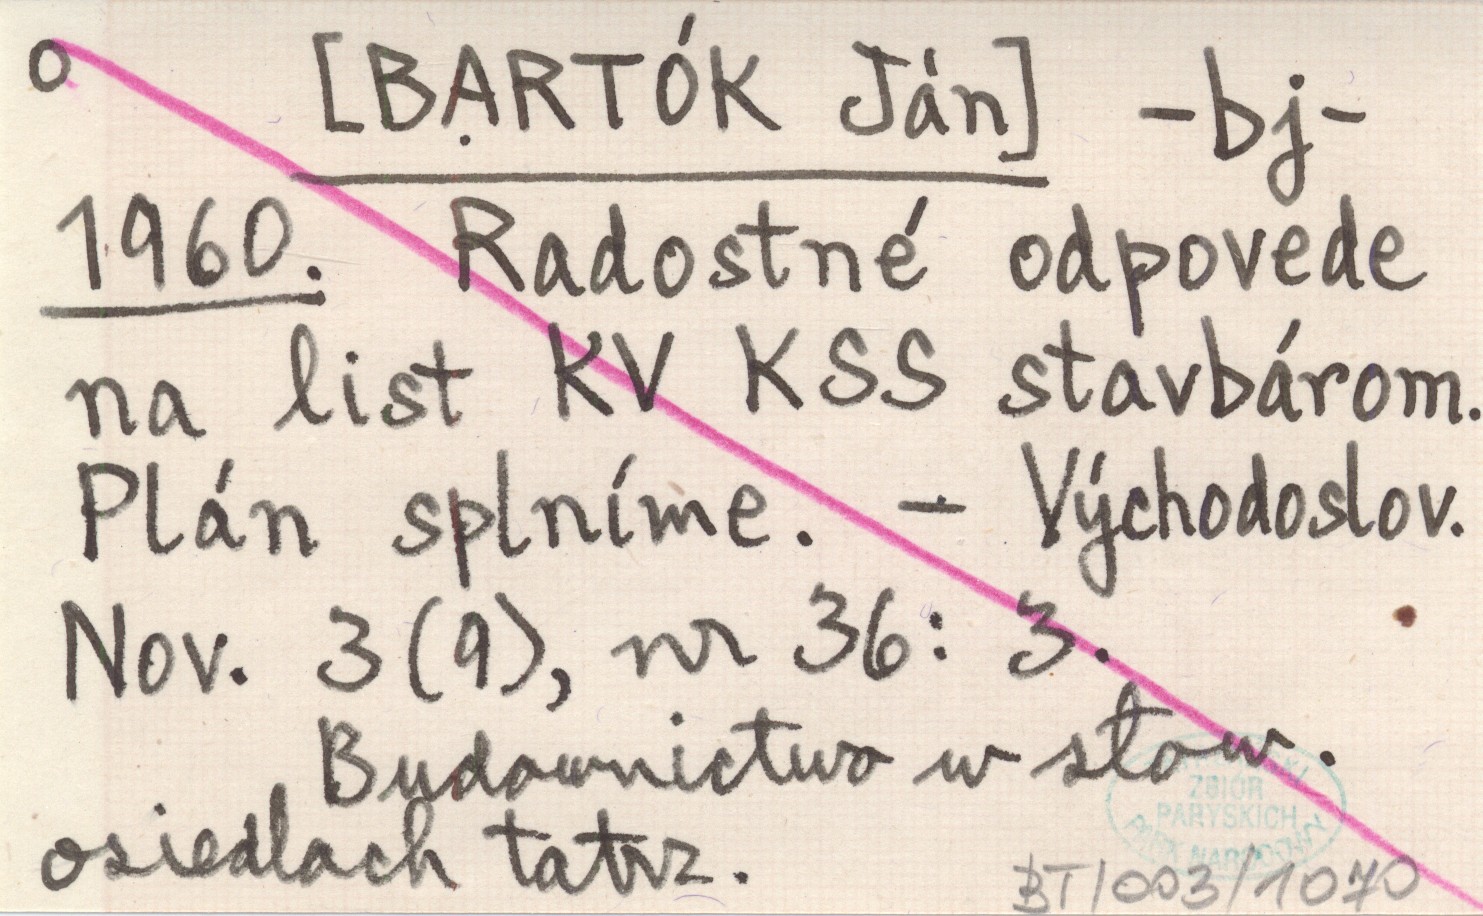 o [BARTÓK Ján] -bj-
1960. Radostné odpovede
na list KV KSS stavbárom.
Plán splníme. - Východoslov.
Nov. 3(9), nr 36: 3.
Budownictwo w słow.
osiedlach tatrz.
ZBIÓR
PARYSKICH
BT/003/1070